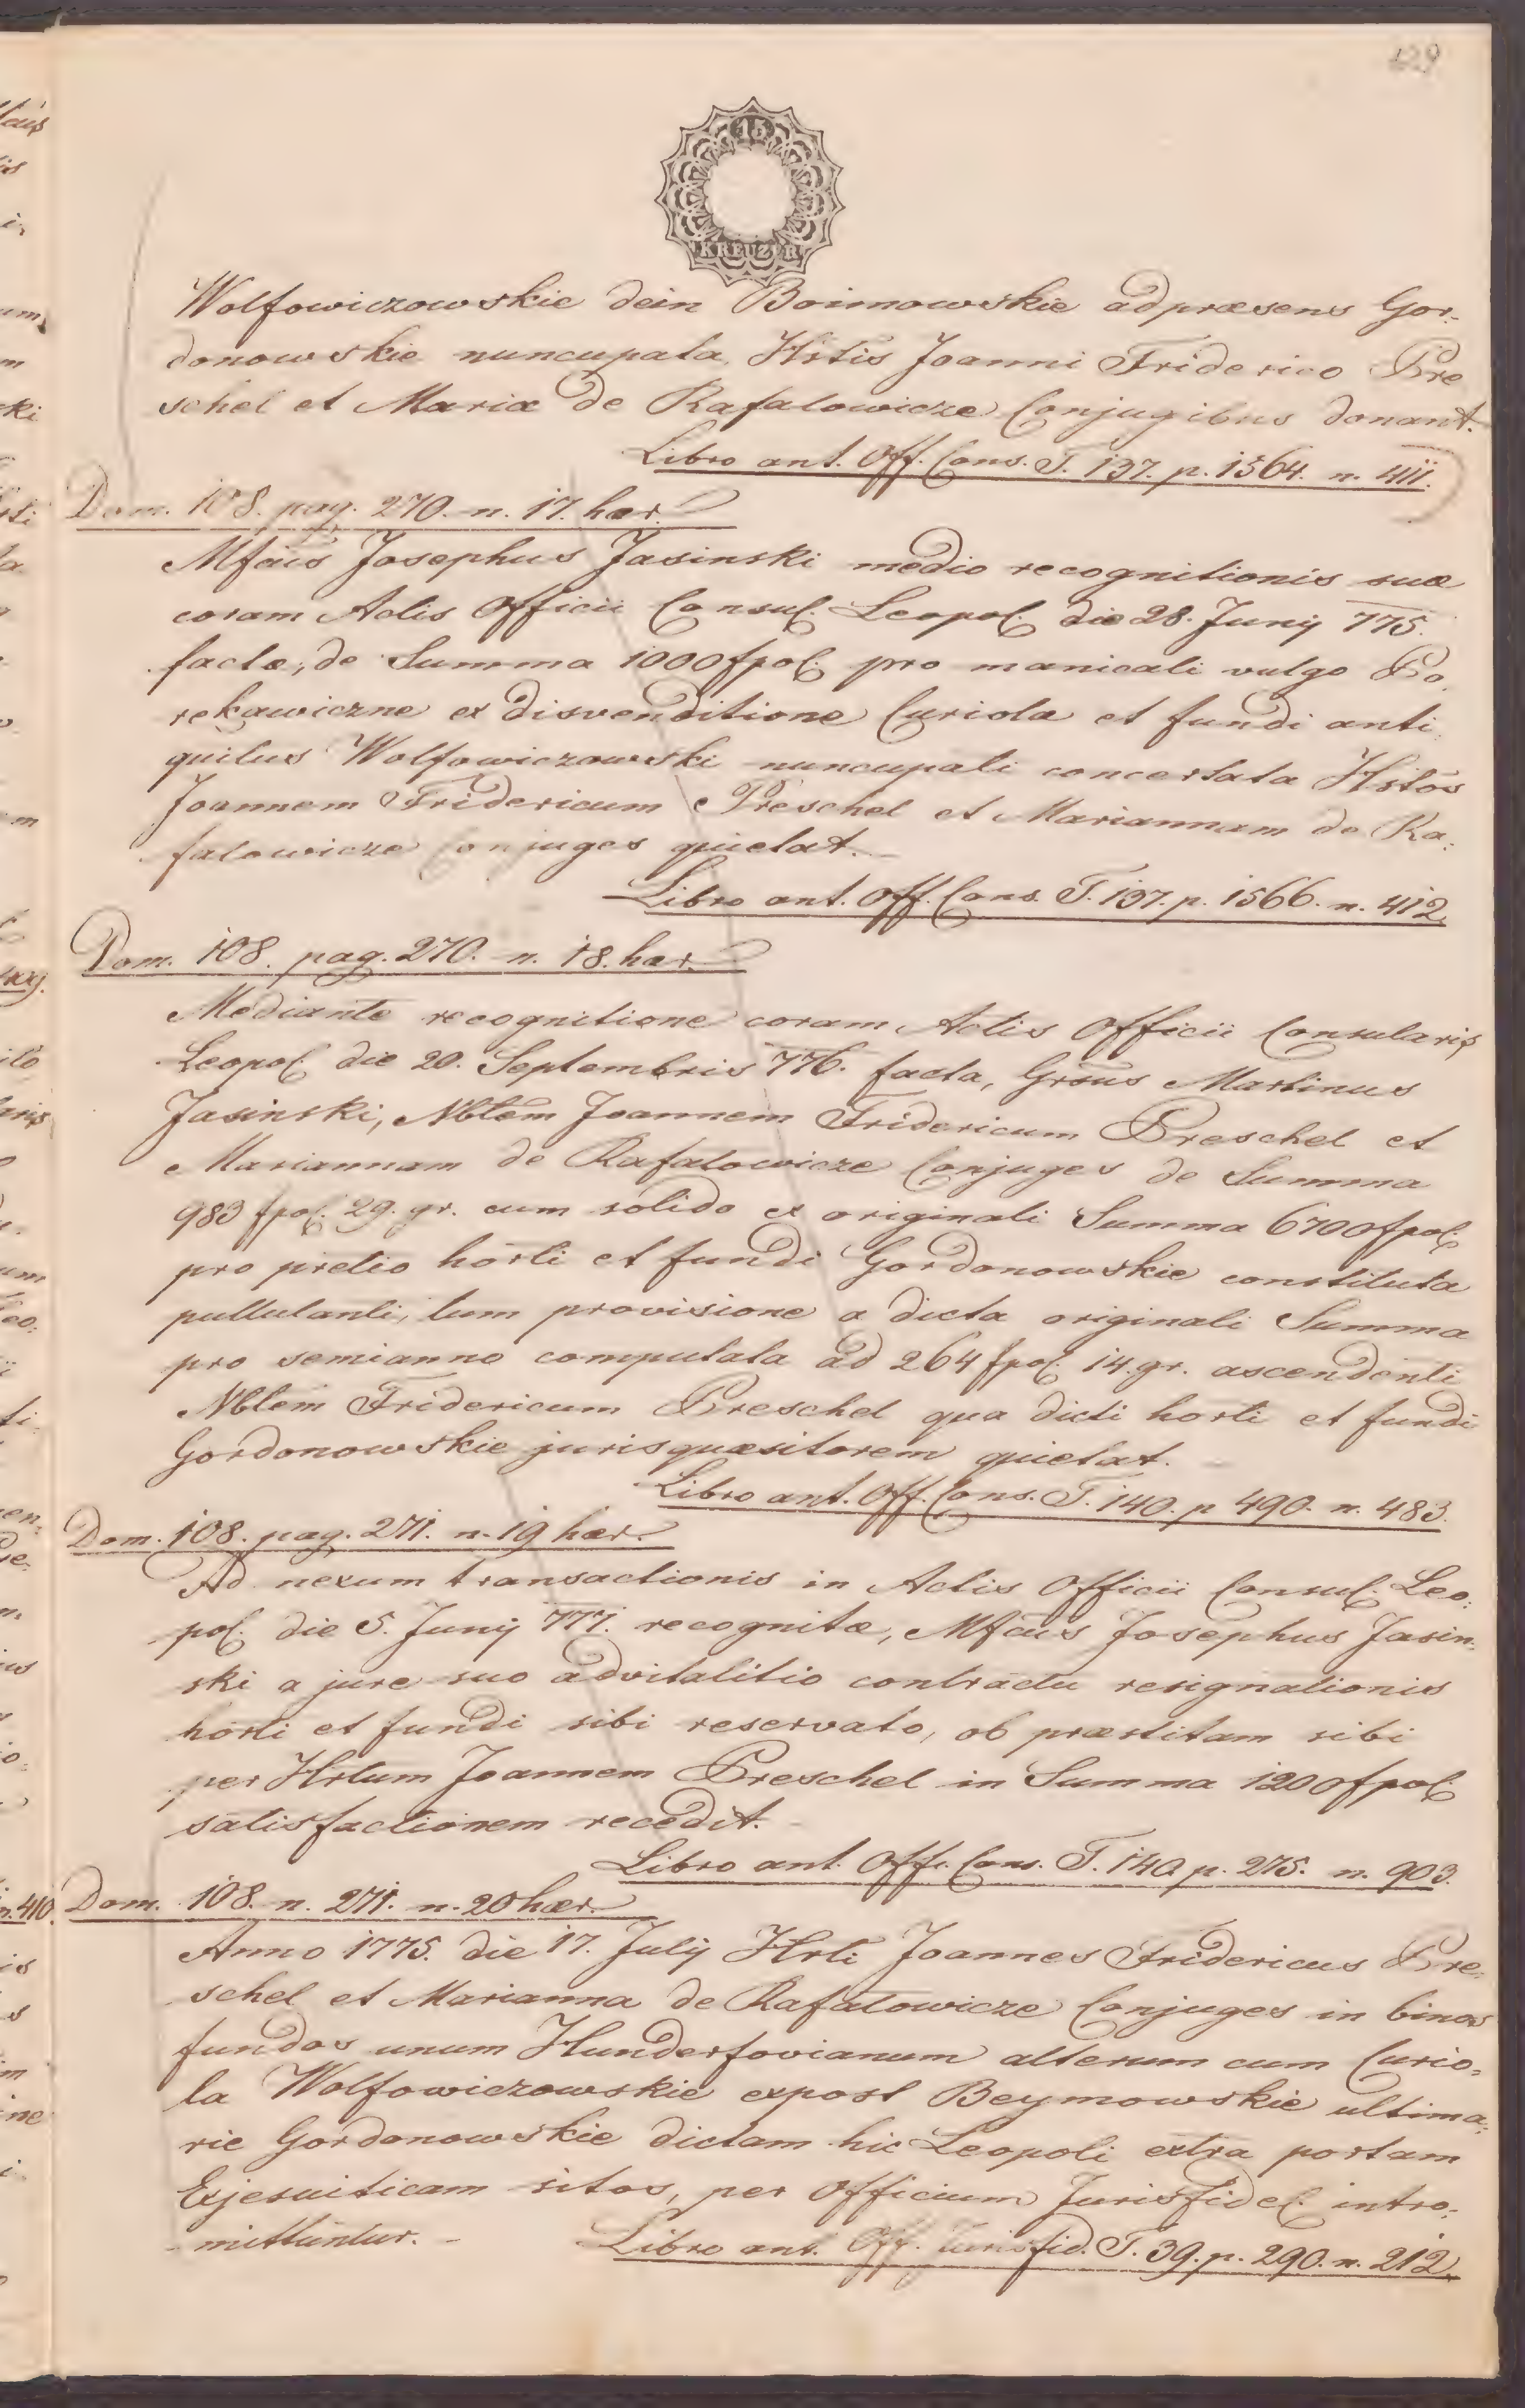 129
15
KREUZER
Wolfowiczowskie dein Boimowskie ad præsens Gor-
donowskie nuncupata, Hstis Joanni Friderico Pre
schel et Mariæ de Rafalowicze Conjugibus donant.
Libro ant. Off. Cons. T. 137. p. 1564. n. 411.
Dom. 108. pag. 270. n. 17. hær.
Mfcus Josephus Jasinski medio recognitionis suæ
coram Actis Officii Consul. Leopol. die 28. Junij 775.
factæ, de Summa 1000 fpol. pro manicali vulgo Po
rekawiczne ex disvenditione Curiolæ et fundi anti
quitus Wolfowiczowski nuncupati concertata Hstos
Joannem Fridericum Preschel et Mariannam de Ra:
falowicze Conjuges quietat.
Libro ant. Off. Cons. T. 137. p. 1566. n. 412.
Dom. 108. pag. 270. n. 18. hær.
Mediante recognitione coram Actis Officii Consularis
Leopol. die 20. Septembris 776. facta, Grsus Martinus
Jasinski, Nbtem Joannem Fridericum Preschel et
Mariannam de Rafalowicze Conjuges de Summa
983 fpol. 29. gr. cum solido ex originali Summa 6700 fpol.
pro pretio horti et fundi Gordonowskie constituta
pullulanti, tum provisione a dicta originali Summa
pro semianno computata ad 264 fpol. 14. gr. ascendenti
Nbtem Fridericum Preschel qua dicti horti et fundi
Gordonowskie jurisquæsitorem quietat.
Libro ant. Off. Cons. T. 140. p 490. n. 483.
Dom. 108. pag. 271. n. 19 hær.
Ad nexum transactionis in Actis Officii Consul. Leo:
pol. die 5. Junij 777. recognitæ, Mfcus Josephus Jasin:
ski a jure suo advitalitio contractu resignationis
horti et fundi sibi reservato, ob præstitam sibi
per Hstum Joannem Preschel in Summa 1200 fpol.
satisfactionem recedit.
Libro ant. Off. Cons. T. 140. p. 275. n. 903.
Dom. 108. n. 271. n. 20 hær.
Anno 1775. die 17. Julij Hsti Joannes Fridericus Pre:
schel et Marianna de Rafalowicze Conjuges in binos
fundos unum Hunderfovianum alterum cum Curio:
la Wolfowiczowskie expost Beymowskie ultima:
rie Gordonowskie dictam hic Leopoli extra portam
Exjesuiticam sitos, per Officium Jurisfidel. intro:
mittuntur.
Libro ant. Off. Jurisfid. T. 39. p. 290. n. 212.